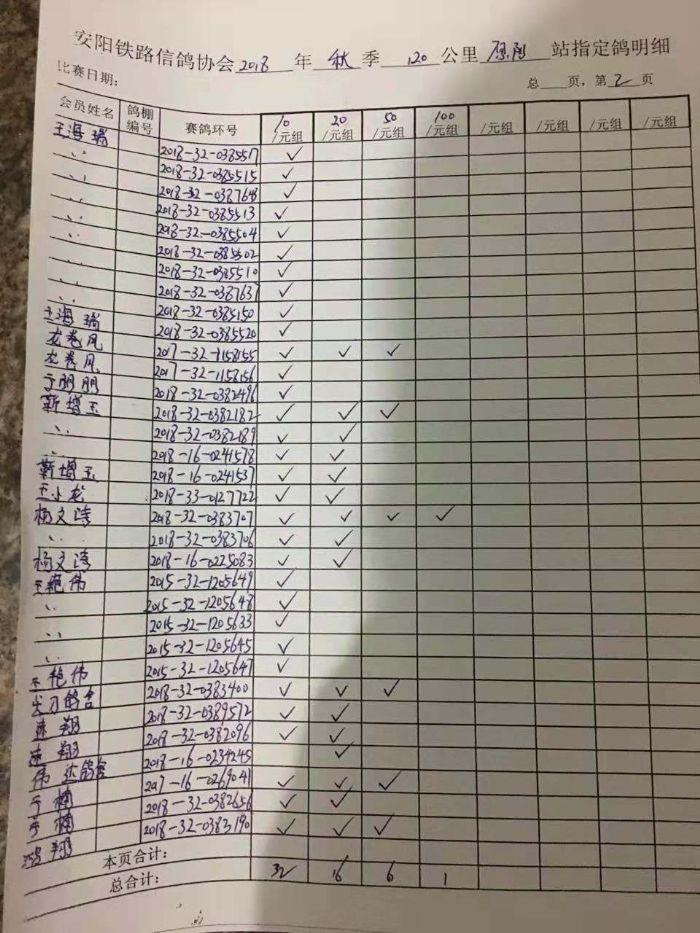 安阳铁路信鸽协会2018年秋季120公里原阳站指定鸽明细
比赛日期: 总 页,第2页
会员姓名 鸽棚编号 赛鸽环号 10/元组 20/元组 50/元组 100/元组 /元组 /元组 /元组 /元组
王海瑞 2018-32-0385517 ✓
〃 2018-32-0385515 ✓
〃 2018-32-0387648 ✓
〃 2018-32-0385513 ✓
〃 2018-32-0385504 ✓
〃 2018-32-0385502 ✓
〃 2018-32-0385510 ✓
〃 2018-32-0387637 ✓
〃 2018-32-0385150 ✓
王海瑞 2018-32-0385520 ✓
龙卷风 2017-32-1158155 ✓ ✓ ✓
龙卷风 2017-32-1158156 ✓
于朋朋 2018-32-0382496 ✓
靳增玉 2018-32-0382182 ✓ ✓ ✓
〃 2018-32-0382189 ✓ ✓
〃 2018-16-0241578 ✓ ✓
靳增玉 2018-16-0241537 ✓ ✓
王小龙 2018-33-0127722 ✓ ✓
杨文涛 2018-32-0383707 ✓ ✓ ✓ ✓
〃 2018-32-0383706 ✓ ✓
杨文涛 2018-16-0225083 ✓ ✓
王艳伟 2015-32-1205649 ✓
〃 2015-32-1205648 ✓
〃 2015-32-1205633 ✓
〃 2015-32-1205645 ✓
王艳伟 2015-32-1205647 ✓
鸽舍 2018-32-0383400 ✓ ✓ ✓
速翔 2018-32-0389572 ✓ ✓
速翔 2018-32-0382096 ✓ ✓
伟达鸽舍 2018-16-0234245 ✓
于楠 2017-16-0269041 ✓ ✓ ✓
于楠 2018-32-0382656 ✓ ✓
鸿翔 2018-32-0383190 ✓ ✓ ✓
本页合计: 32 16 6 1
总合计: